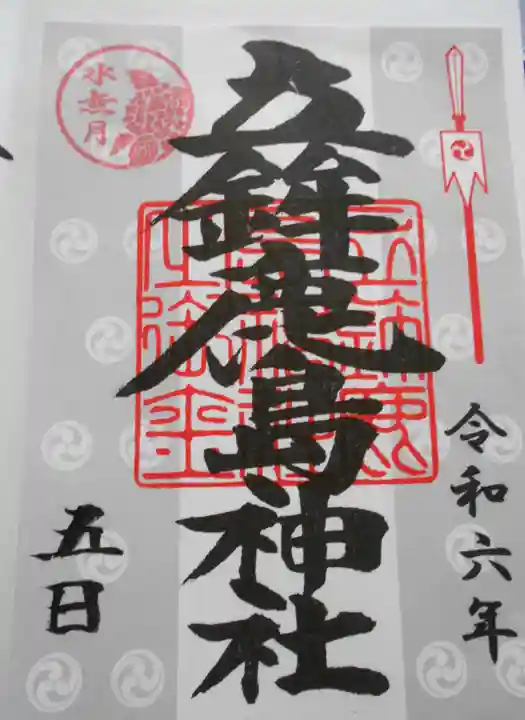 令和六年
立鉾鹿島神社
水無月
五日